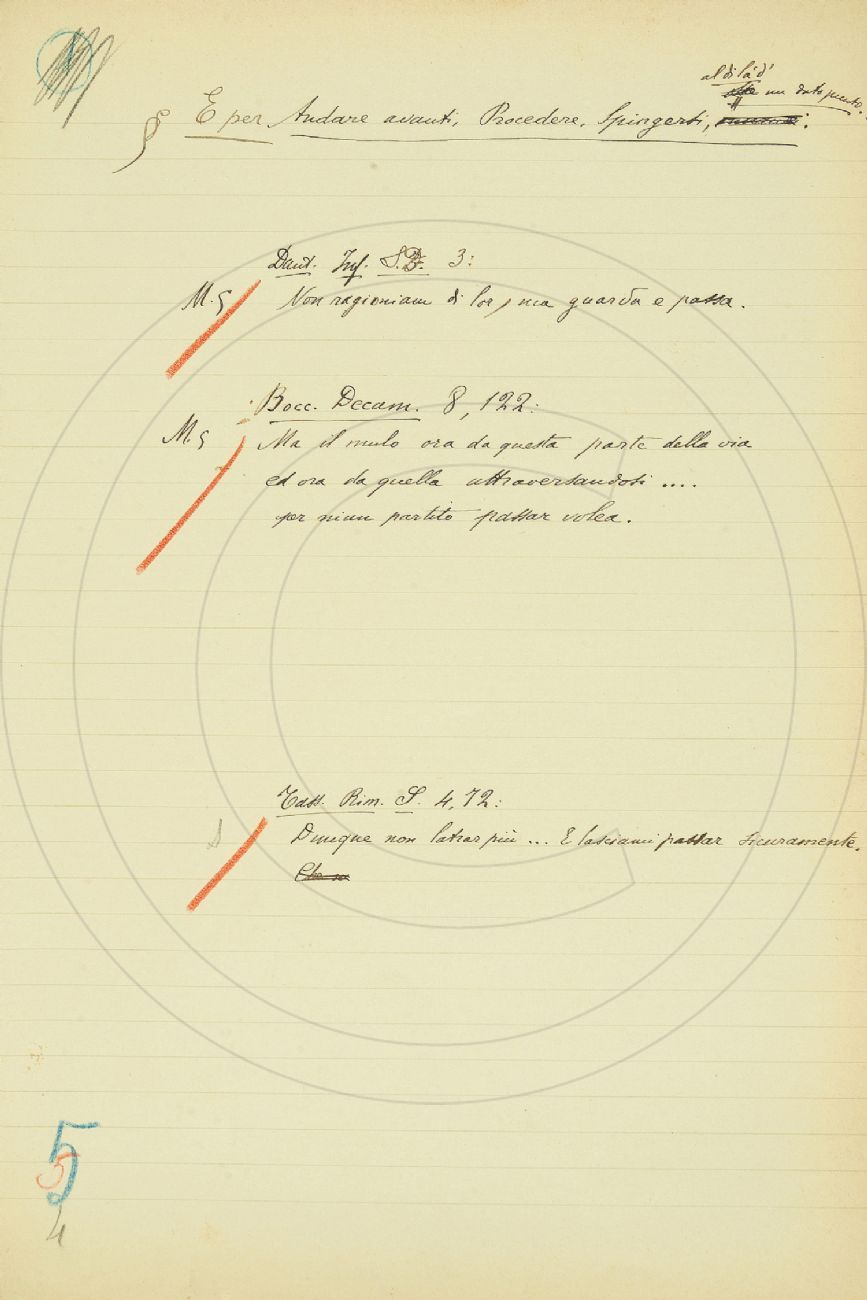 al di là d'
un dato punto.
§ E per Andare avanti, Procedere, Spingersi,
Dant. Inf. 3:
M. § Non ragioniam di lor, ma guarda e passa.
Bocc. Decam. 8, 122:
M. § Ma il mulo ora da questa parte della via
ed ora da quella attraversandosi ....
per niun partito passar volea.
Tass. Rim. S. 4, 72:
Dunque non latrar più ... E lasciami passar sicuramente.
5
5
4